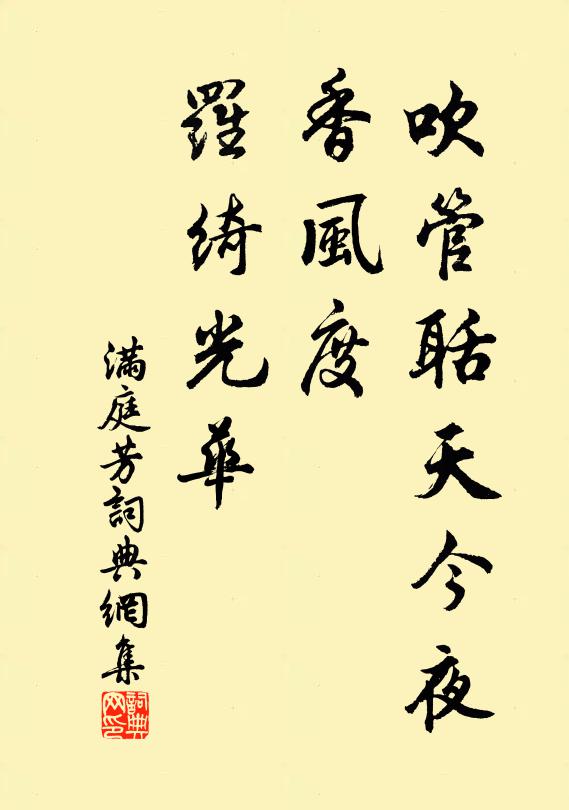 吹管聒天今夜
香風度
羅綺光華
滿庭芳詞典網集
詞典网印